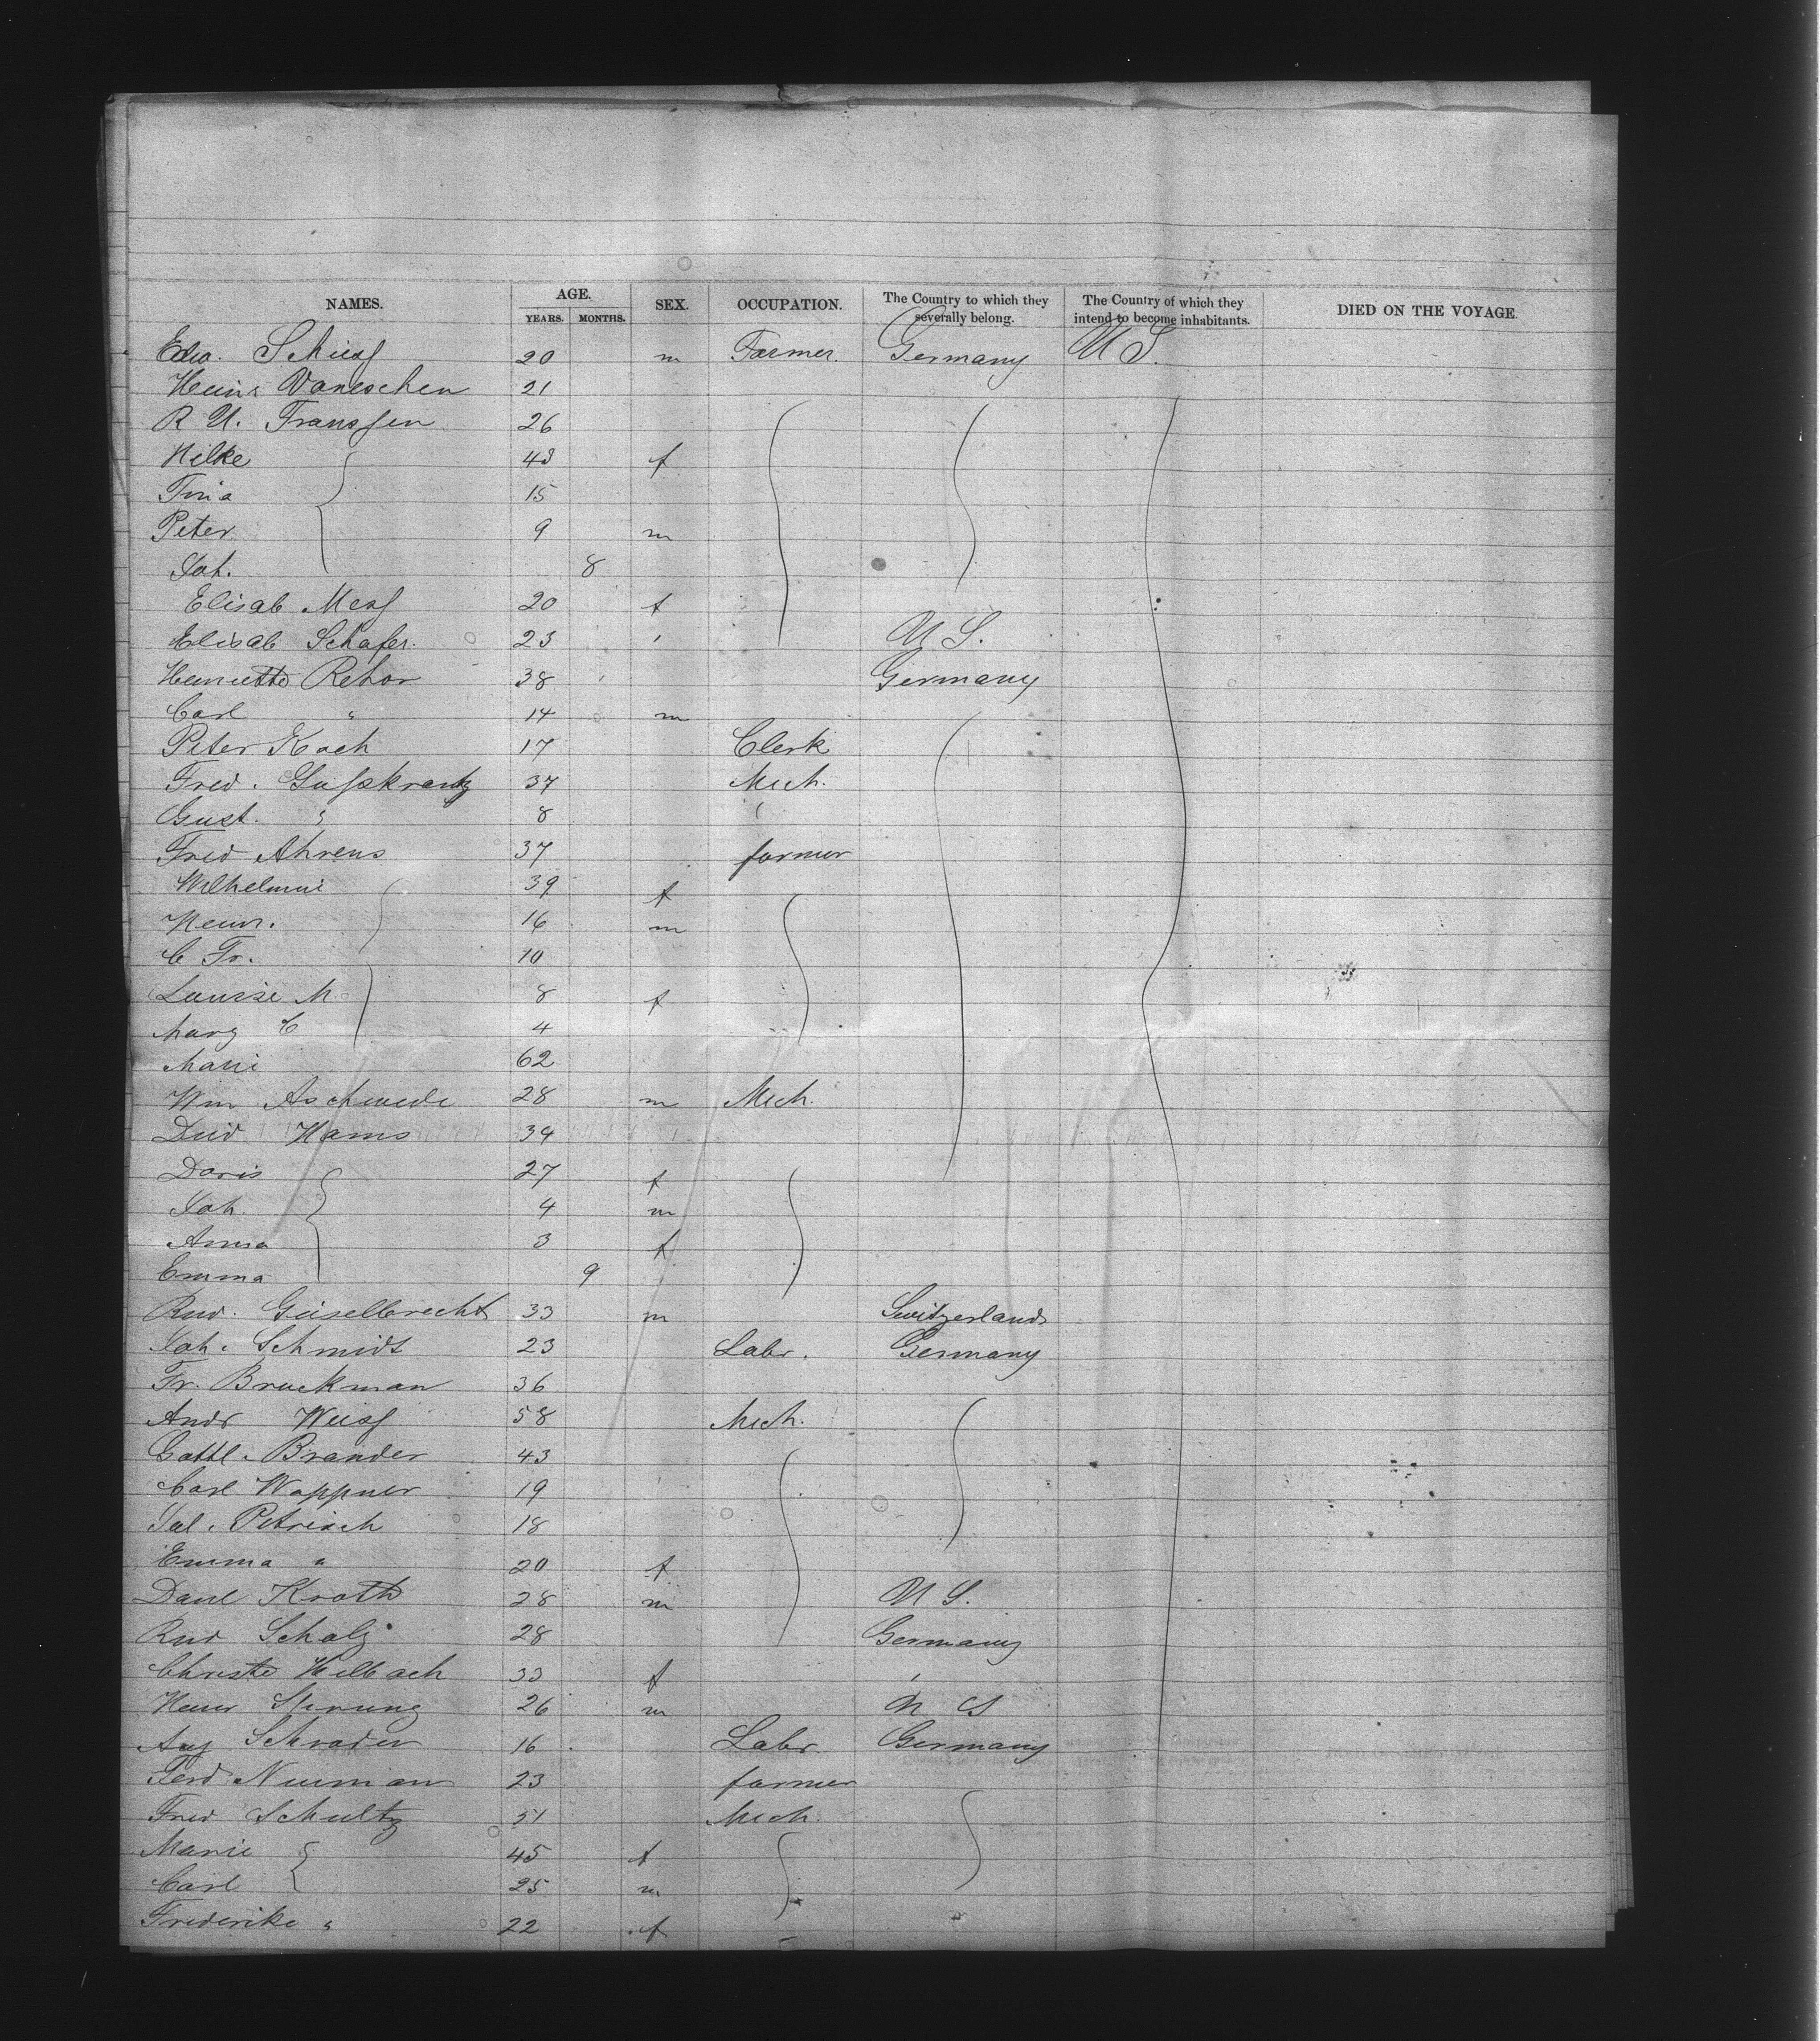 NAMES. AGE. YEARS. MONTHS. SEX. OCCUPATION. The Country to which they severally belong. The Country of which they intend to become inhabitants. DIED ON THE VOYAGE.
20 m Farmer. Germany U S.
21
R U. Franssen 26
Hilke 43 f
Tina 15
Peter 9 m
Joh. 8
Elisab Mess 20 f
Elisab Schafer. 23 " U S.
Henriette Rehor 38 Germany
Carl " 14 m
Peter Koch 17 Clerk
Fred. 37 Mich.
Gust. " 8 "
Fred Ahrens 37 farmer
Wilhelmine 39 f
Heinr. 16 m
C Fr. 10
Louise M 8 f
Marg C 4
Marie 62
Wm Aschwede 28 m Mech.
Died Hams 34
Doris 27 f
Joh. 4 m
Anna 3 f
Emma 9
Rud. Geiselbrecht 33 m Switzerland
Joh. Schmidt 23 Labr. Germany
Fr. Bruckman 36
Andr Weiss 58 Mech.
Gottl. Brander 43
Carl Wappner 19
Jul. Petrisch 18
Emma " 20 f
Danl Kroth 28 m U S.
Rud Scholz 28 Germany
Christe Helbach 33 f "
Heinr Sprung 26 m U S
Aug Schrader 16 Labr. Germany
Ferd Neuman 23 farmer
Fred Schultz 51 Mech.
Marie 45 f
Carl 25 m
Frederike " 22 f